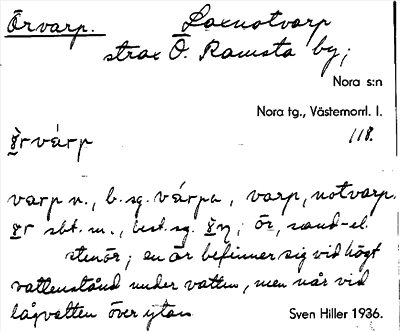 Örvarp. Laxnotvarp
strax Ö. Ramsta by;
Nora s:n
Nora tg., Västernorrl. l.
118.
varp n., b. sg. várpa, varp, notvarp.
sbt. m., best. sg. ör, sand- el.
stenör; en ör befinner sig vid högt
vattenstånd under vatten, men når vid
lågvatten över ytan
Sven Hiller 1936.